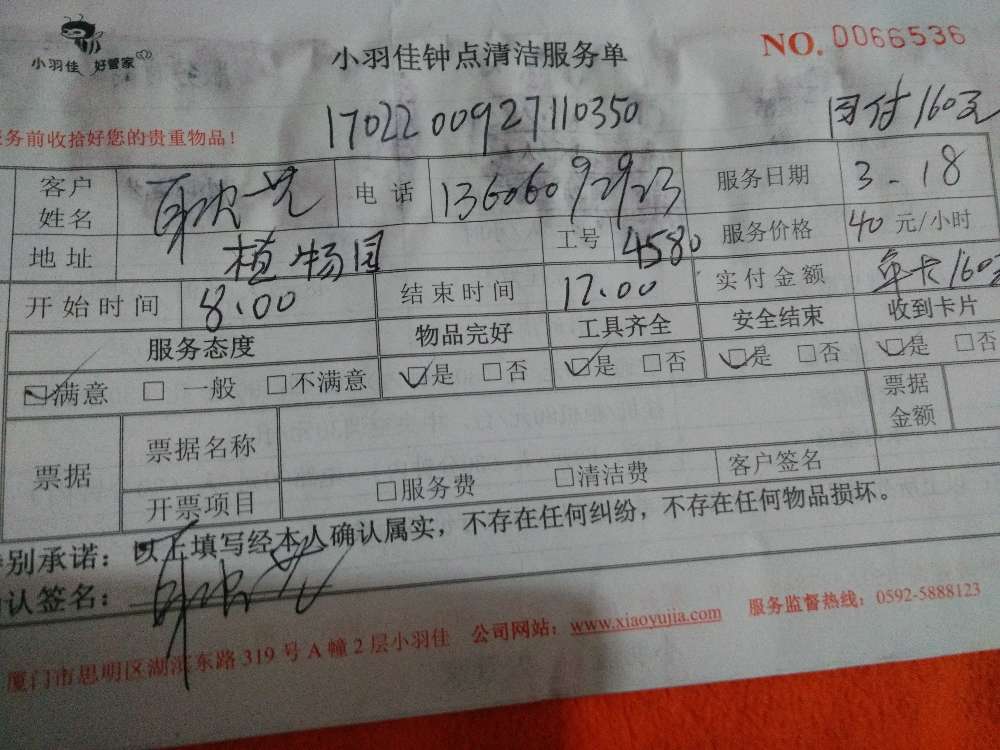 小羽佳 好管家
小羽佳钟点清洁服务单
NO. 0066536
务前收拾好您的贵重物品！
1702200927110350
160元
客户姓名
电话 13606092923 服务日期 3-18
地址 植物园 工号 4580 服务价格 40 元/小时
开始时间 8:00 结束时间 12:00 实付金额 单卡160元
服务态度 物品完好 工具齐全 安全结束 收到卡片
☑满意 □ 一般 □不满意 ☑是 □否 ☑是 □否 ☑是 □否 ☑是 □否
票据 票据名称 票据金额
开票项目 □服务费 □清洁费 客户签名
别承诺：以上填写经本人确认属实，不存在任何纠纷，不存在任何物品损坏。
认签名：
厦门市思明区湖滨东路 319 号 A 幢 2 层小羽佳 公司网站：www.xiaoyujia.com 服务监督热线：0592-5888123